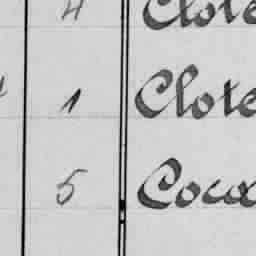 4 Clote
1 Clote
5 Coca